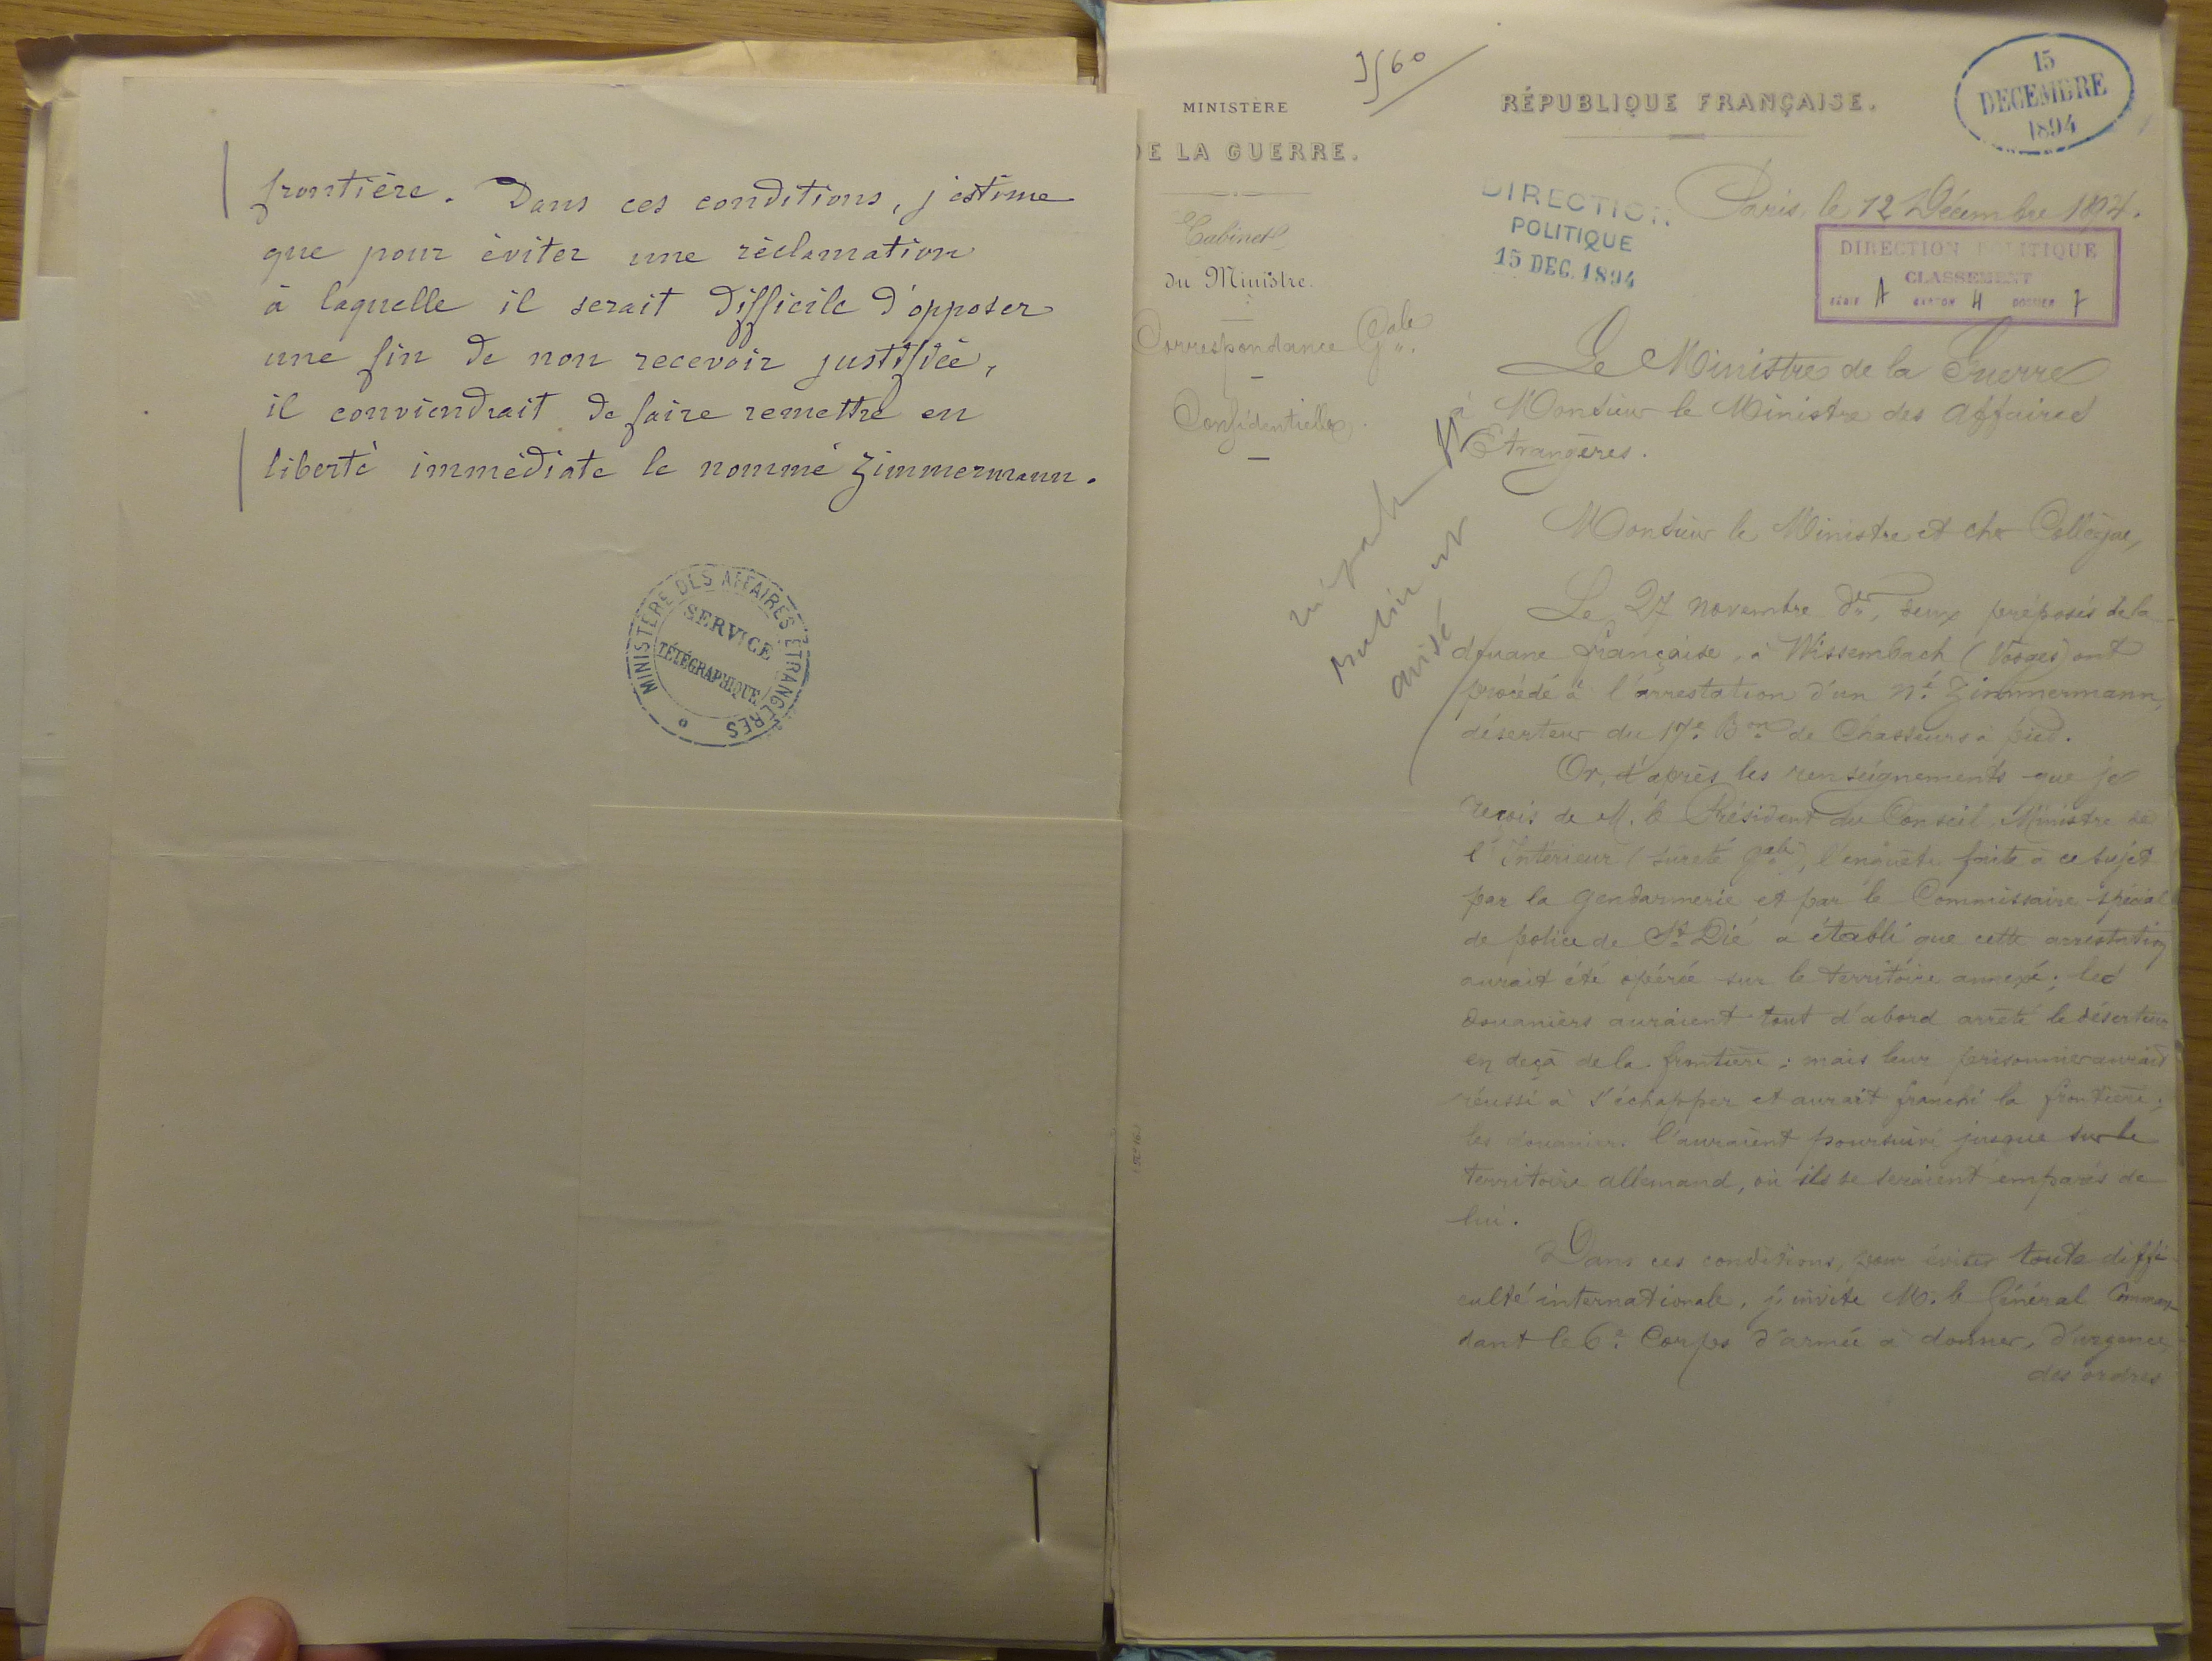 frontière. Dans ces conditions, j'estime
que pour éviter une réclamation
à laquelle il serait difficile d'opposer
une fin de non recevoir justifiée,
il conviendrait de faire remettre en
liberté immédiate le nommé Zimmermann.
MINISTÈRE DES AFFAIRES ETRANGÈRES
SERVICE
TÉLÉGRAPHIQUE
MINISTÈRE
DE LA GUERRE.
Cabinet
du Ministre.
Correspondance Gale.
Confidentielle.
RÉPUBLIQUE FRANÇAISE.
15
DECEMBRE
1894
DIRECTION
POLITIQUE
15 DEC. 1894
Paris, le 12 Décembre 1894.
DIRECTION POLITIQUE
CLASSEMENT
SÉRIE A CARTON 4 DOSSIER 7
Le Ministre de la Guerre
à Monsieur le Ministre des Affaires
Etrangères.
Monsieur le Ministre et cher Collègue,
Le 27 novembre der, deux préposés de la
douane française, à Wissembach (Vosges) ont
procédé à l'arrestation d'un né Zimmermann,
déserteur du 17e Bon de Chasseurs à pied.
Or, d'après les renseignements que je
reçois de M. le Président du Conseil, Ministre de
l'Intérieur (sûreté gale), l'enquête faite à ce sujet
par la gendarmerie et par le Commissaire spécial
de police de St Dié a établi que cette arrestation
aurait été opérée sur le territoire annexé; les
douaniers auraient tout d'abord arrêté le déserteur
en deçà de la frontière; mais leur prisonnier aurait
réussi à s'échapper et aurait franchi la frontière;
les douaniers l'auraient poursuivi jusque sur le
territoire allemand, où ils se seraient emparés de
lui.
Dans ces conditions, pour éviter toute diffi-
culté internationale, j'invite M. le Général Comman-
dant le 6e Corps d'armée à donner, d'urgence
des ordres